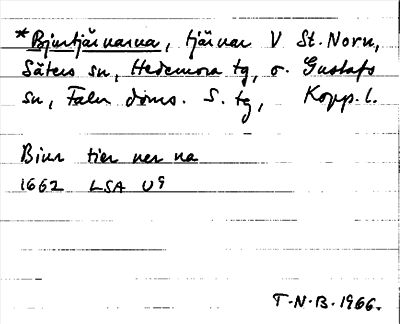 *Bjurtjärnarna, tjärnar V St. Norn,
Säters sn, Hedemora tg, o. Gustafs
sn, Falu doms. S. tg, Kopp. l.
Biur tier ner na
1662 LSA U9
T.N.B. 1966.